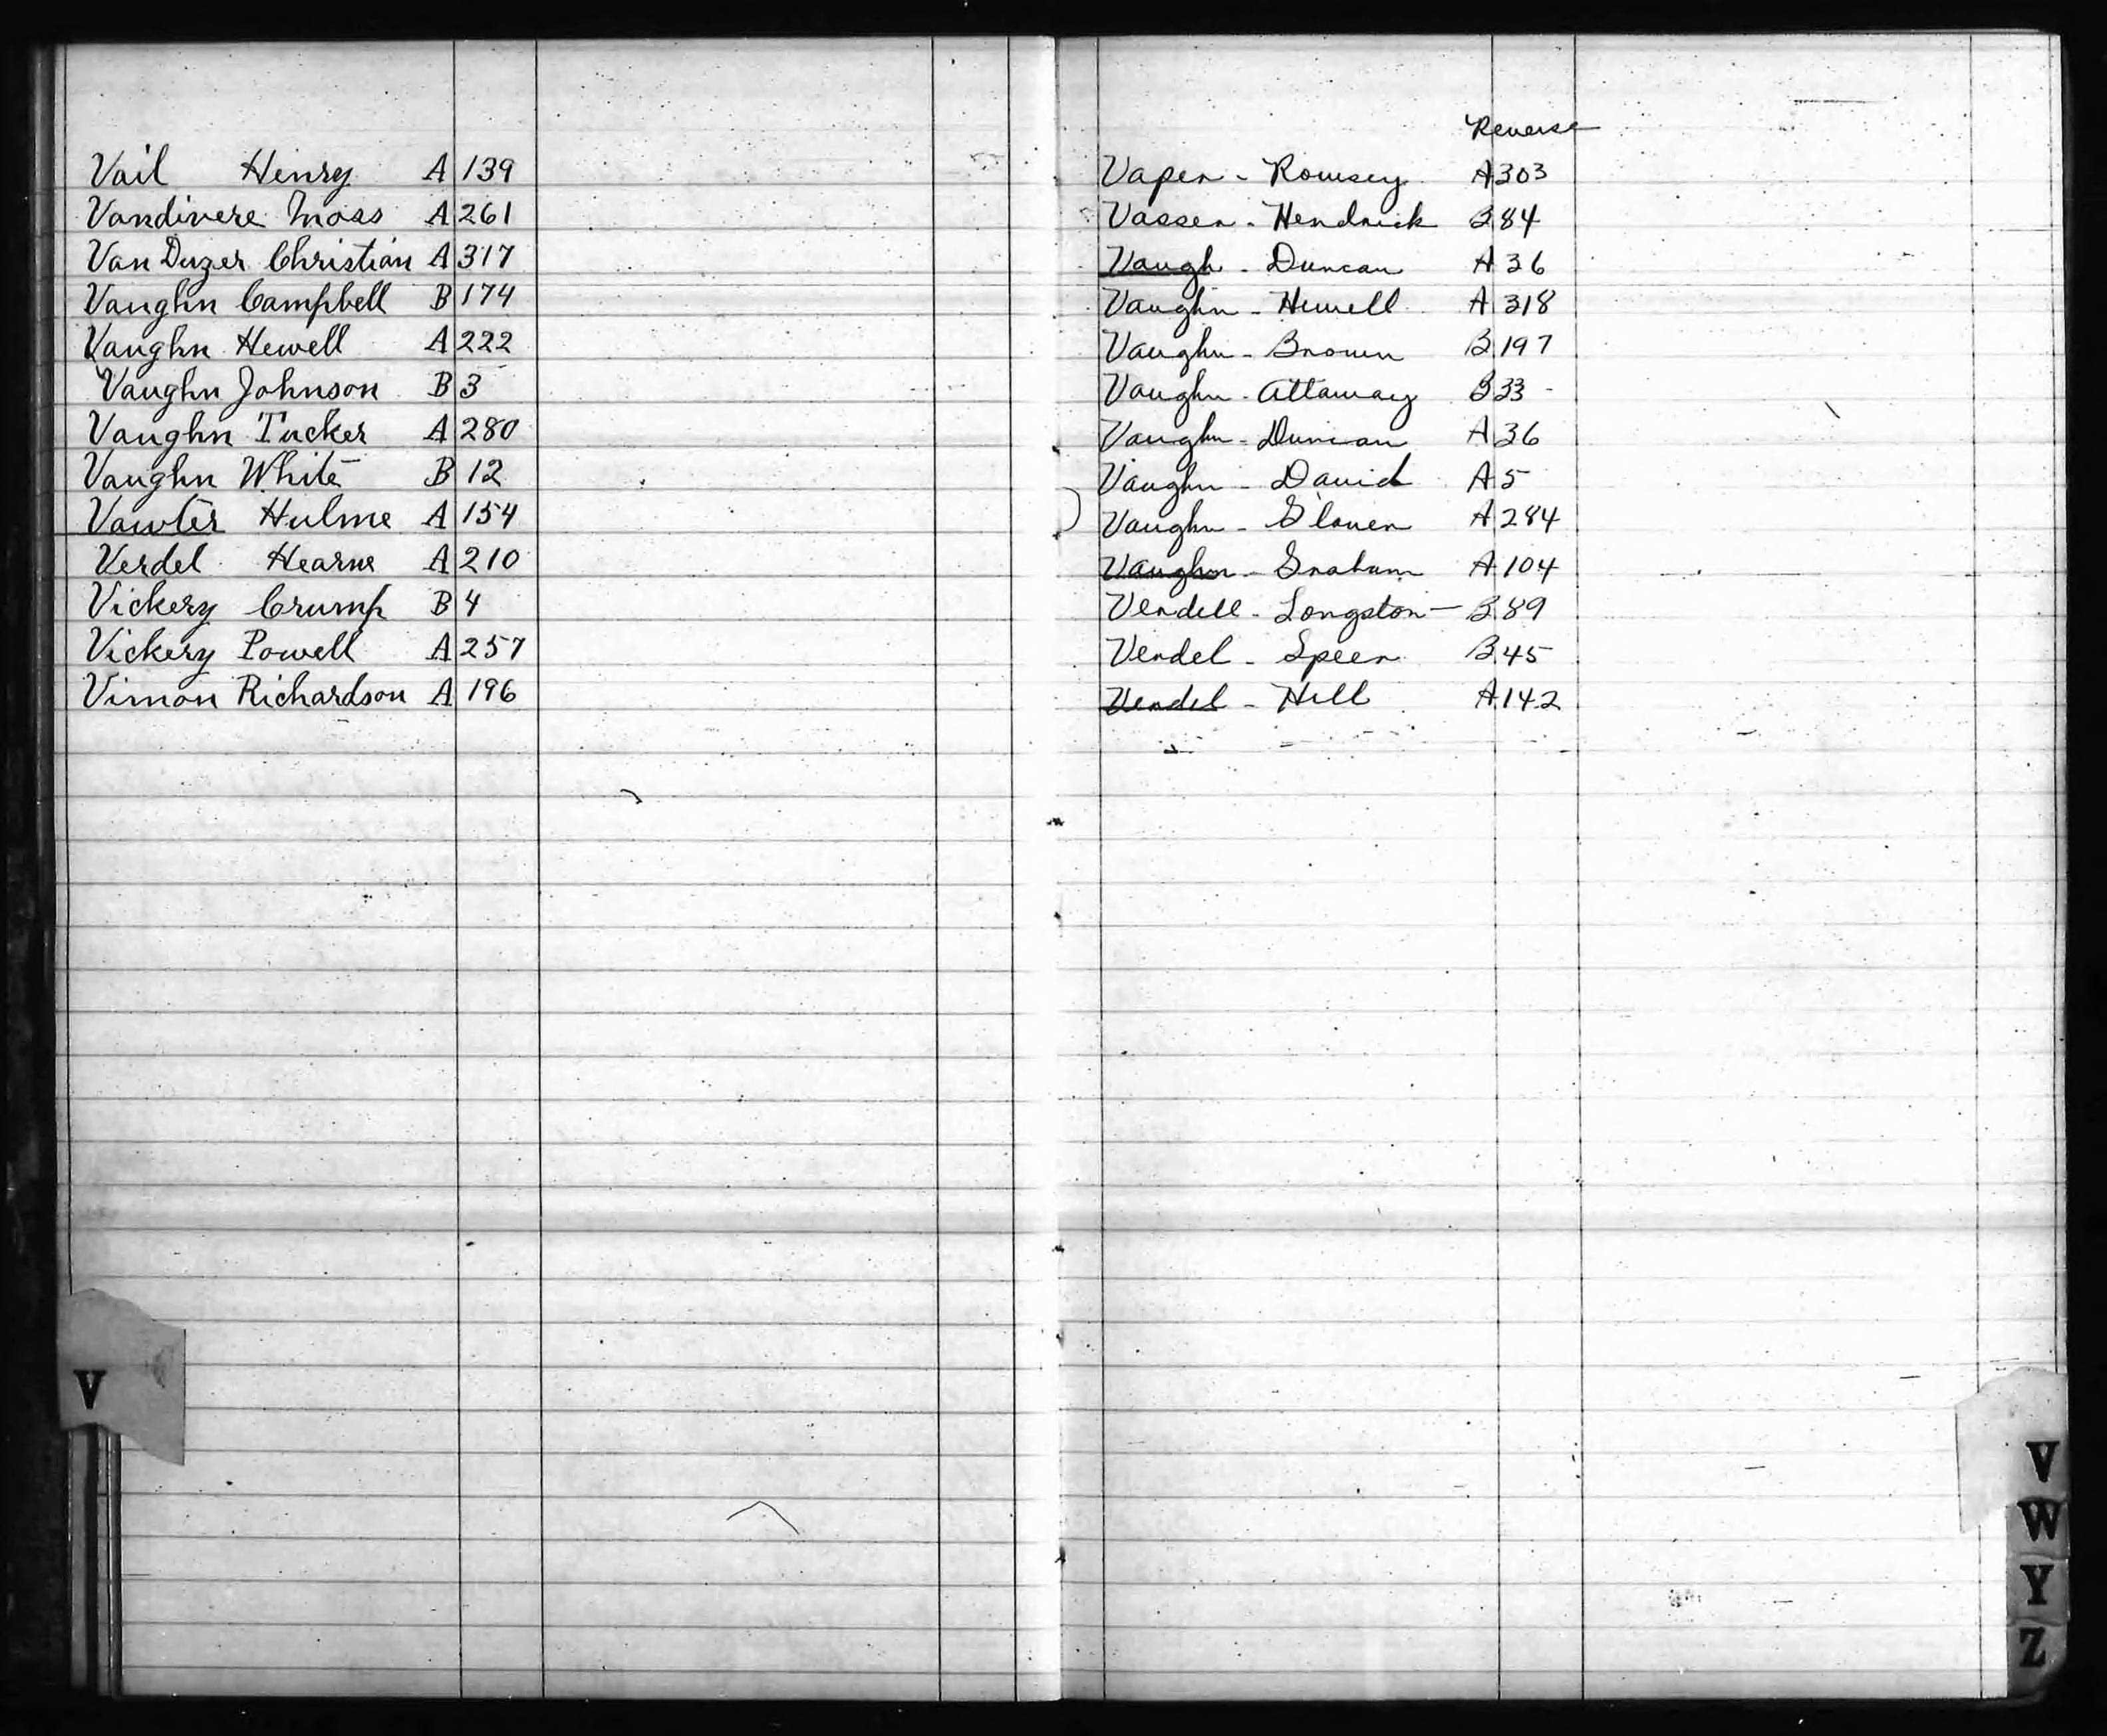 Vail Henry A 139
Vandivere Moss A 261
Van Duzer Christian A 317
Vaughn Campbell B 174
Vaughn Hewell A 222
Vaughn Johnson B 3
Vaughn Tucker A 280
Vaughn White B 12
Vawter Hulme A 154
Verdel Hearne A 210
Vickery Crump B 4
Vickery Powell A 257
Vimon Richardson A 196
V
Reverse
Vaper - Romsey A 303
Vasser - Hendrick B 84
Vaugh - Duncan A 36
Vaughn - Hewell A 318
Vaughn - Brown B 197
Vaughn - Attaway B 33
Vaughn - Duncan A 36
Vaughn - David A 5
Vaughn - Glover A 284
Vaughn - Graham A 104
Verdell - Longston - B 89
Verdel - Speer B 45
Verdel - Hill A 142
V
W
Y
Z